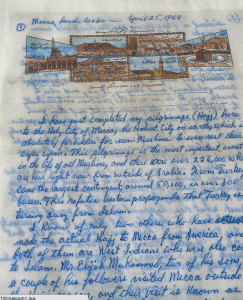 ① Mecca, Saudi Arabia — April 25, 1964
I have just completed my pilgrimage (Hajj) here
to the Holy City of Mecca, the Holiest City on earth, which is
absolutely forbidden for non-Muslims to even rest their
eyes upon. This pilgrimage is the most important event
in the life of all Muslims, and there are over 226,000 who
are here right now from outside of Arabia. From Turkey
came the largest contingent, around 50,000, in over 500
buses. This refutes western propaganda that Turkey is
turning away from Islam.
I know of only two others who have actually
made the actual Hajj to Mecca from America, and
both of them are West Indians who were also con
to Islam. Mr. Elijah Muhammad, two of his sons
a couple of his followers visited Mecca outside
and their visit is known as